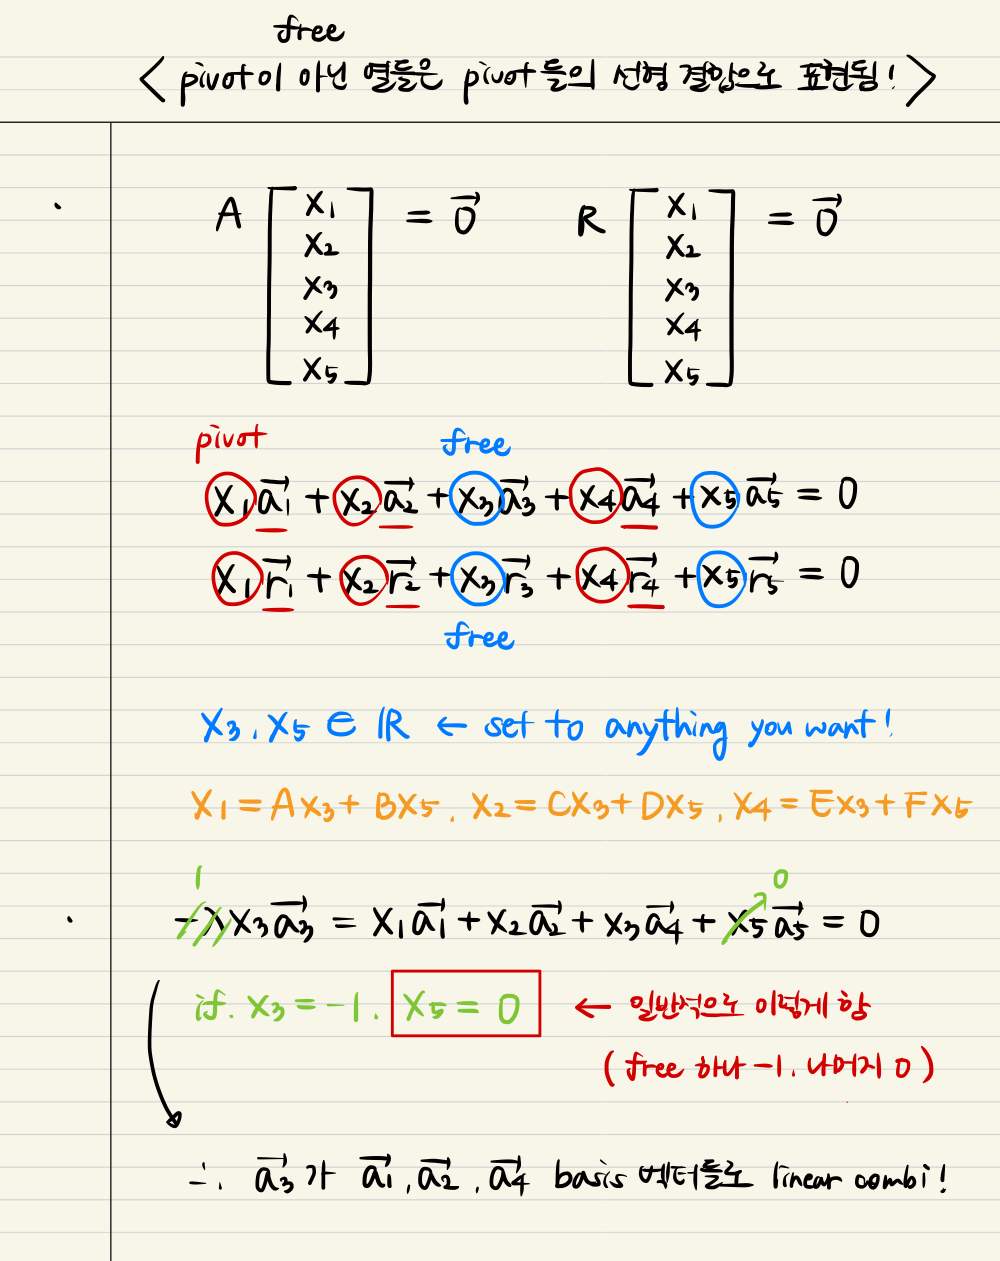 free
< pivot이 아닌 열들은 pivot들의 선형 결합으로 표현됨! >
· A [x₁ x₂ x₃ x₄ x₅] = 0⃗   R [x₁ x₂ x₃ x₄ x₅] = 0⃗
pivot free
x₁a₁⃗ + x₂a₂⃗ + x₃a₃⃗ + x₄a₄⃗ + x₅a₅⃗ = 0
x₁r₁⃗ + x₂r₂⃗ + x₃r₃⃗ + x₄r₄⃗ + x₅r₅⃗ = 0
free
x₃, x₅ ∈ ℝ ← set to anything you want!
x₁ = Ax₃ + Bx₅, x₂ = Cx₃ + Dx₅, x₄ = Ex₃ + Fx₅
1 0
· x₃a₃⃗ = x₁a₁⃗ + x₂a₂⃗ + x₃a₄⃗ + x₅a₅⃗ = 0
if. x₃ = -1. x₅ = 0 ← 일반적으로 이렇게 함
(free 하나 -1. 나머지 0)
∴ a₃⃗가 a₁⃗, a₂⃗, a₄⃗ basis 벡터들로 linear combi!